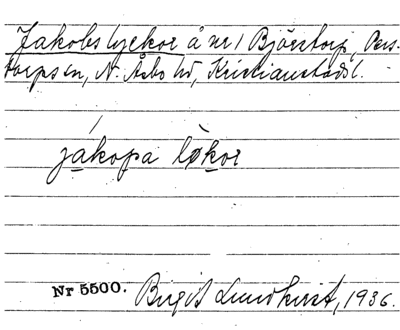 Jakobs lyckor å nr 1 Bjärstorp, Pers-
torps sn, N. Åsbo hd, Kristianstads l.
jákopa lỳkor
Nr 5500. Birgit Lundkvist, 1936.